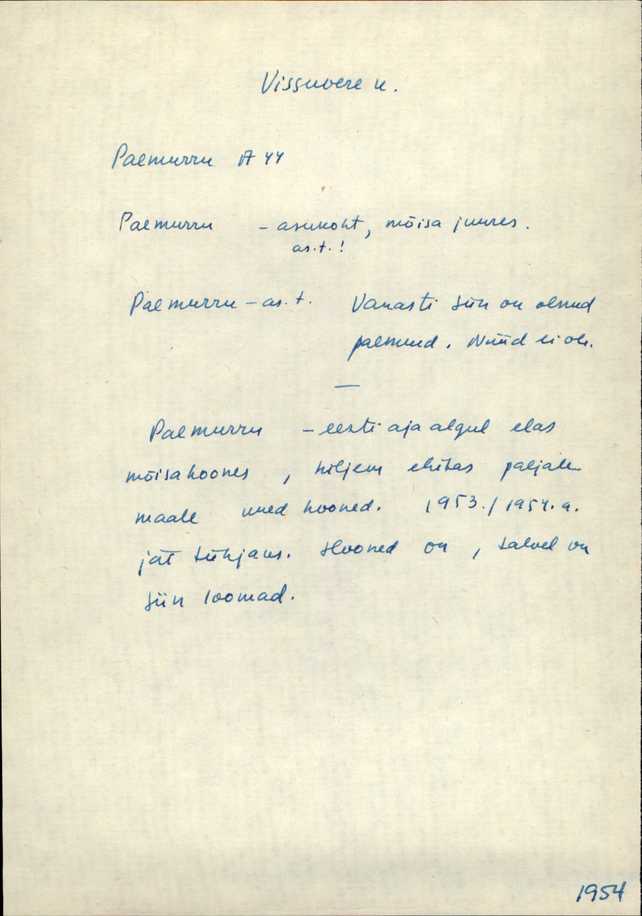 Vissuvere k.
Paemurru A 44
Paemurru – asukoht, mõisa juures.
as.t.!
Paemurru – as.t. Vanasti siin on olnud
paemurd. Nüüd ei ole.
—
Paemurru – eesti aja algul elas
mõisahoones, hiljem ehitas paljale
maale uued hooned. 1953./1954.a.
jät tühjaus. Hooned on, talvel on
siin loomad.
1954